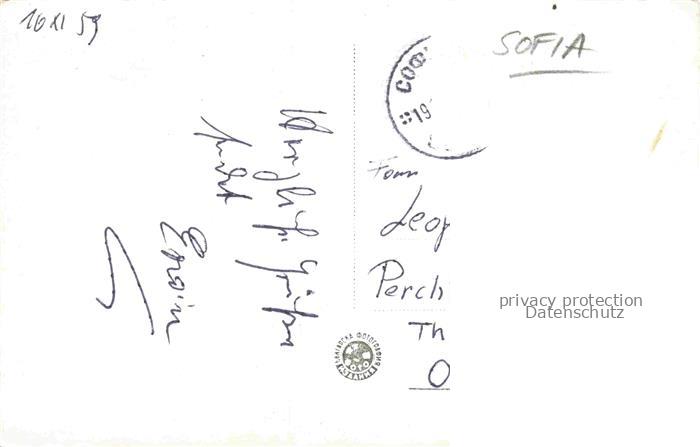 16 XI 59
SOFIA
СОФ
19
Herzliche Grüße
sendet
Erwin
Fam
Leop
Perch
Th
O
БЪЛГАРСКА ФОТОГРАФИЯ
ИЗДАНИЯ
privacy protection
Datenschutz